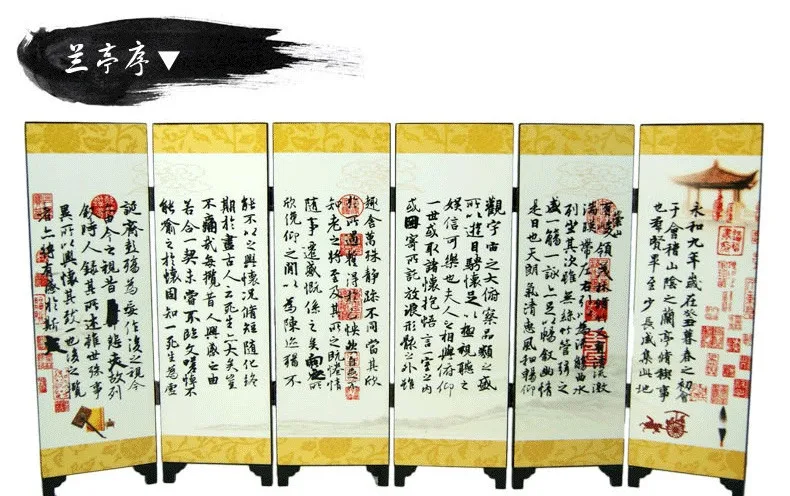 兰亭序
永和九年歲在癸丑暮春之初會
于會稽山陰之蘭亭脩稧事
也羣賢畢至少長咸集此地
有崇山峻領茂林脩竹又有清流激
湍暎帶左右引以為流觴曲水
列坐其次雖無絲竹管弦之
盛一觴一詠亦足以暢敘幽情
是日也天朗氣清惠風和暢仰
觀宇宙之大俯察品類之盛
所以遊目騁懷足以極視聽之
娛信可樂也夫人之相與俯仰
一世或取諸懷抱悟言一室之內
或因寄所託放浪形骸之外雖
趣舍萬殊靜躁不同當其欣
於所遇暫得於己怏然自足不
知老之將至及其所之既惓情
隨事遷感慨係之矣向之所
欣俛仰之間以為陳迹猶不
能不以之興懷況脩短隨化終
期於盡古人云死生亦大矣豈
不痛哉每攬昔人興感之由
若合一契未嘗不臨文嗟悼不
能喻之於懷固知一死生為虛
誕齊彭殤為妄作後之視今
亦由今之視昔悲夫故列
敘時人錄其所述雖世殊事
異所以興懷其致一也後之攬
者亦將有感於斯文